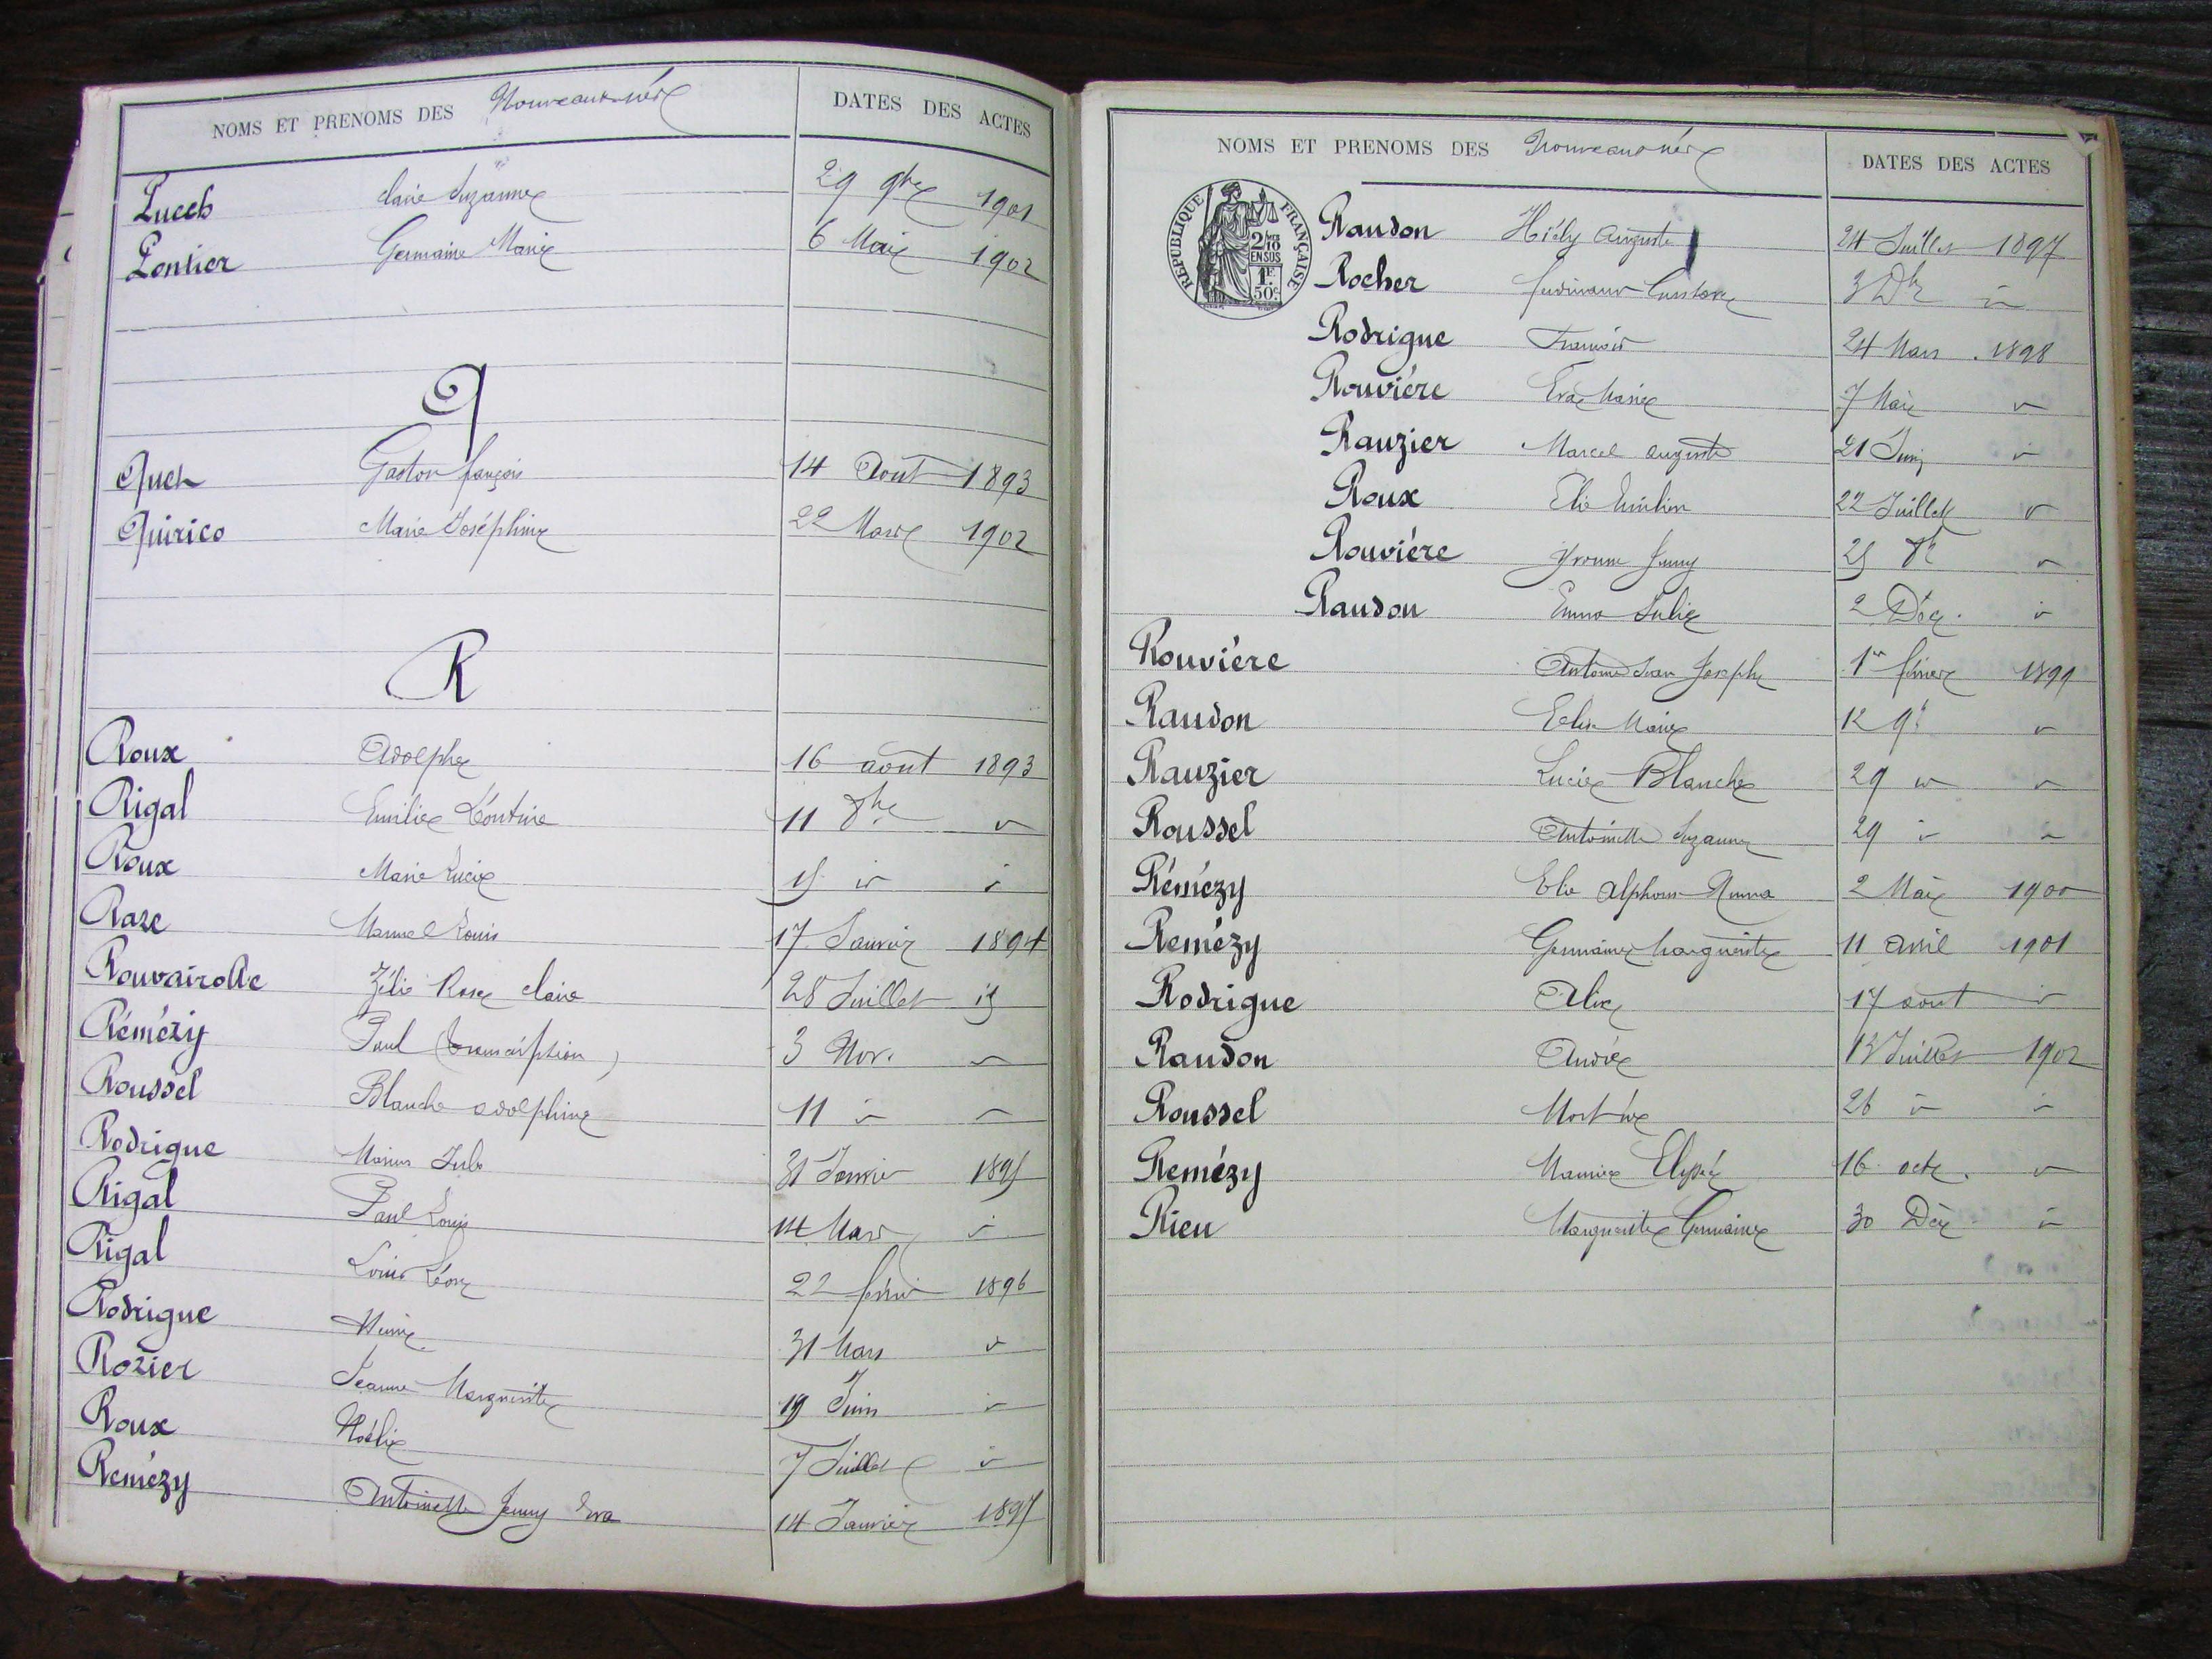 NOMS ET PRENOMS DES Nouveaux-nés DATES DES ACTES
Puech Claire Suzanne 29 9bre 1901
Pontier Germaine Marie 6 Mai 1902
Q
Quet Gaston françois 14 Aout 1893
Quirico Marie Joséphine 22 Mars 1902
R
Roux Adolphe 16 août 1893
Rigal Emilie Léontine 11 8bre
Roux Marie Lucie 15 id id
Raze Manuel Louis 17 Janvier 1894
Rouvairolle Zélie Rose Claire 28 Juillet id
Rémézy Paul (transcription) 3 Nov.
Roussel Blanche adolphine 11
Rodrigue Marius Jules 31 Janvier 1895
Rigal Paul Louis 14 Mars
Rigal Louis Léon 22 février 1896
Rodrigue 31 Mars
Rozier Jeanne Marguerite 19 Juin
Roux Noélie 7 Juillet
Remézy Antoinette Jenny Eva 14 Janvier 1897
NOMS ET PRENOMS DES Nouveaux-nés DATES DES ACTES
RÉPUBLIQUE FRANÇAISE
2/10 EN SUS
1F 50c
Raudon Hiély Auguste 24 Juillet 1897
Rocher ferdinand Gustave 3 Dbre
Rodrigue François 24 Mars 1898
Rouviére Eva Marie 7 Mai
Rauzier Marcel auguste 21 Juin
Roux Elie Emilien 22 Juillet
Rouviére Yvonne Jenny 25 8bre
Raudon Emma Julie 2 Déc.
Rouviére Antoine Jean Joseph 1er février 1899
Raudon Marie 12 9bre
Rauzier Lucie Blanche 29
Roussel Antoinette Suzanne 29
Rémézy Elie Alphonse Numa 2 Mai 1900
Remézy Germaine Marguerite 11 avril 1901
Rodrigue Alix 17 aout
Raudon André Juillet 1902
Roussel 26
Remézy Maurice Elysée 16 octe.
Rieu Marguerite Germaine 30 Déc